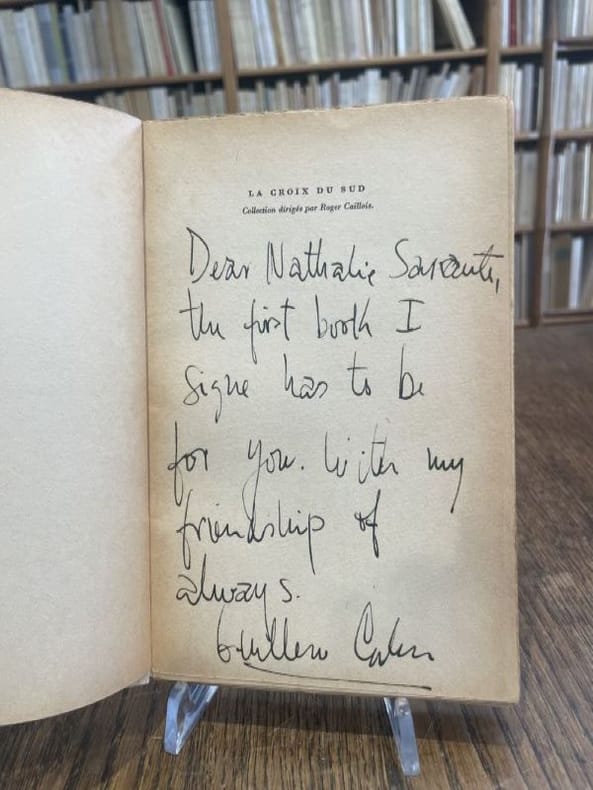 LA CROIX DU SUD
Collection dirigée par Roger Caillois.
Dear Nathalie Sarraute,
the first book I
signe has to be
for you. With my
friendship of
always.
Guillermo Cabre